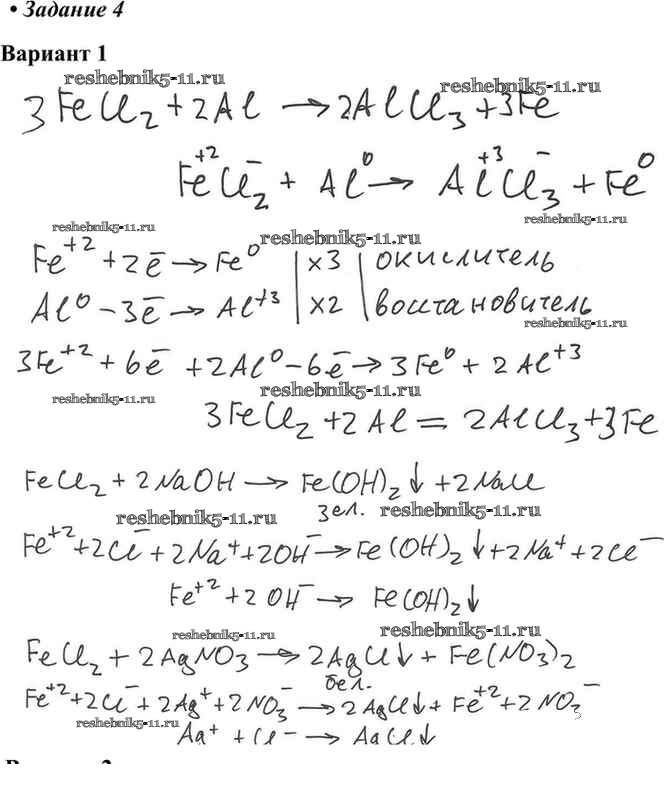 • Задание 4
Вариант 1
reshebnik5-11.ru reshebnik5-11.ru
3FeCl₂ + 2Al → 2AlCl₃ + 3Fe
Fe⁺²Cl₂⁻ + Al⁰ → Al⁺³Cl₃⁻ + Fe⁰
reshebnik5-11.ru reshebnik5-11.ru reshebnik5-11.ru
Fe⁺² + 2ē → Fe⁰ | ×3 | окислитель
Al⁰ - 3ē → Al⁺³ | ×2 | восстановитель
reshebnik5-11.ru
3Fe⁺² + 6ē + 2Al⁰ - 6ē → 3Fe⁰ + 2Al⁺³
reshebnik5-11.ru reshebnik5-11.ru
3FeCl₂ + 2Al = 2AlCl₃ + 3Fe
FeCl₂ + 2NaOH → Fe(OH)₂↓ + 2NaCl
зел.
reshebnik5-11.ru reshebnik5-11.ru
Fe⁺² + 2Cl⁻ + 2Na⁺ + 2OH⁻ → Fe(OH)₂↓ + 2Na⁺ + 2Cl⁻
Fe⁺² + 2OH⁻ → Fe(OH)₂↓
reshebnik5-11.ru reshebnik5-11.ru
FeCl₂ + 2AgNO₃ → 2AgCl↓ + Fe(NO₃)₂
бел.
Fe⁺² + 2Cl⁻ + 2Ag⁺ + 2NO₃⁻ → 2AgCl↓ + Fe⁺² + 2NO₃⁻
reshebnik5-11.ru
Ag⁺ + Cl⁻ → AgCl↓